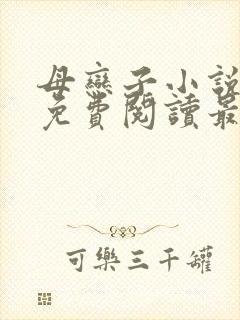 母戀子小說
免費閱讀最
可樂三千罐